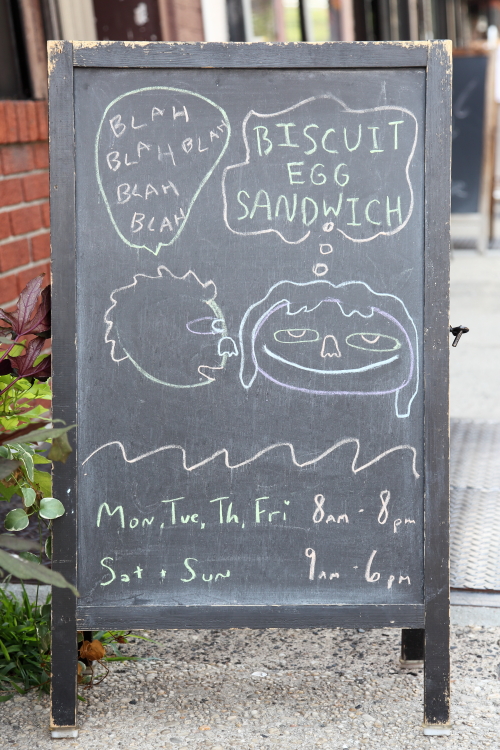 BLAH
BLAH BLAH
BLAH
BLAH
BISCUIT
EGG
SANDWICH
Mon, Tue, Th, Fri 8am - 8pm
Sat + Sun 9am - 6pm